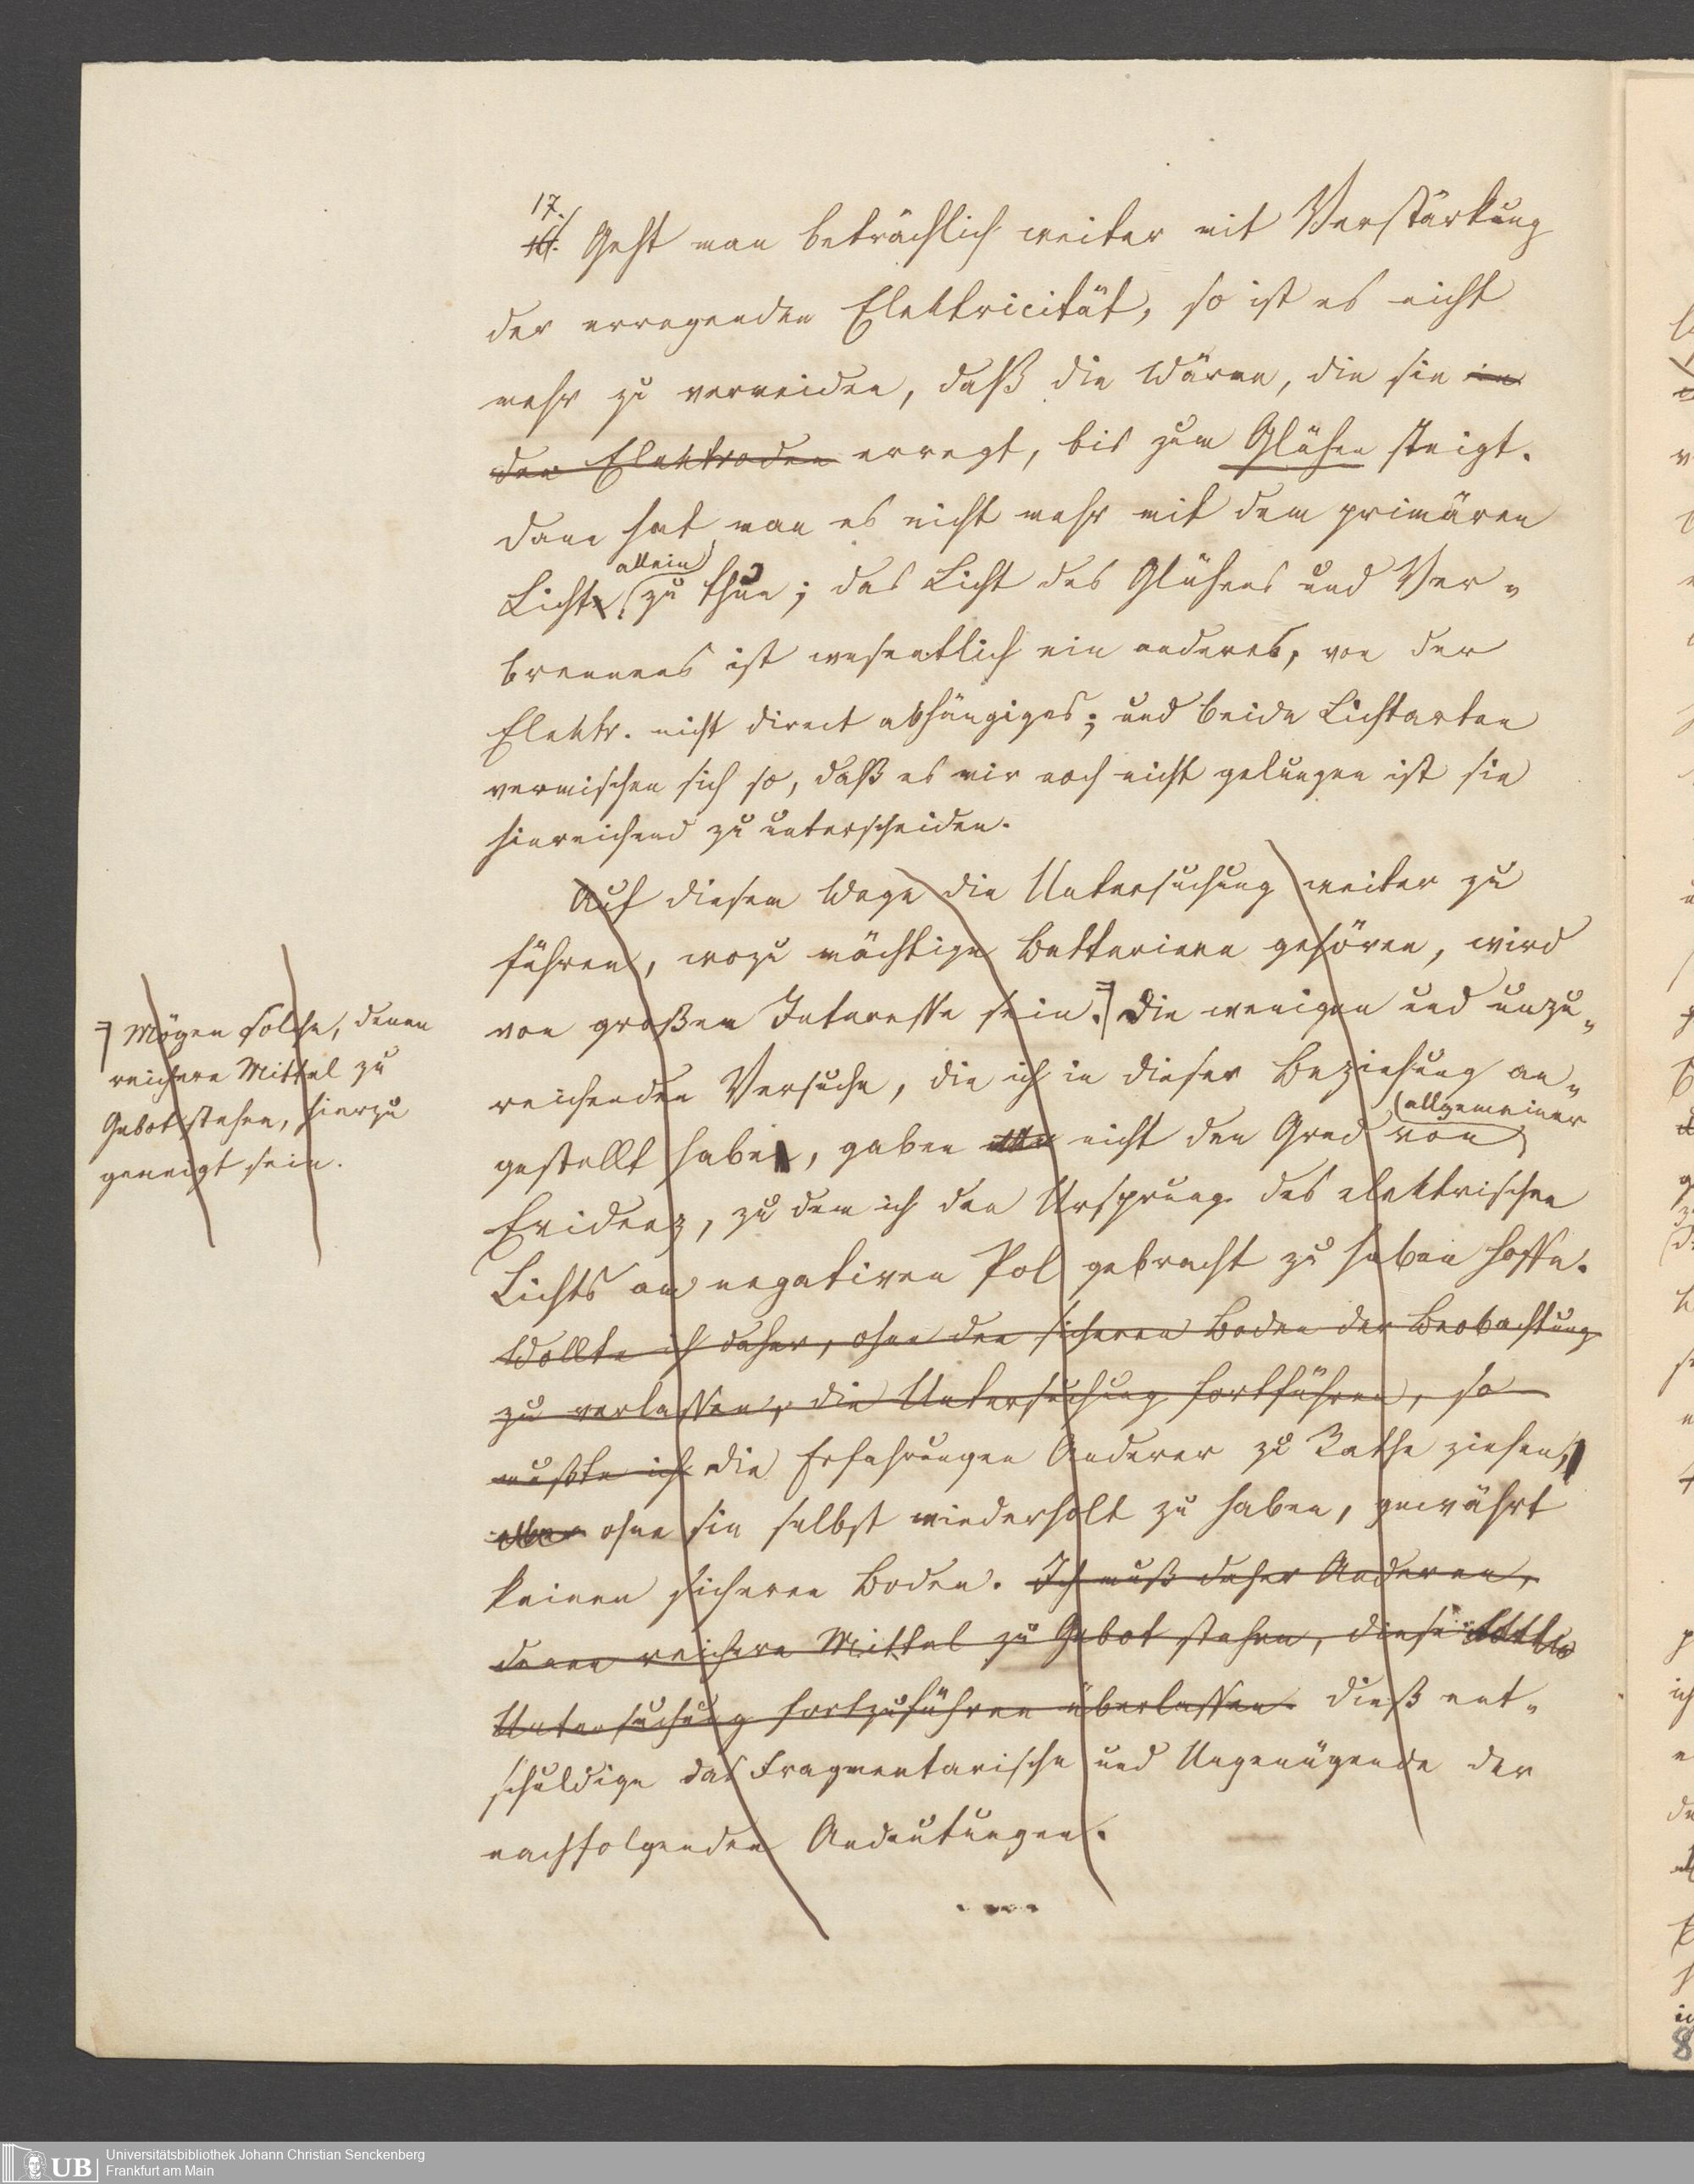 17.
16. Geht man beträchlich weiter mit Verstärkung
der erregenden Elektricität, so ist es nicht
mehr zu vermeiden, daß die Wärme, die sie in
den Elektroden erregt, bis zum Glühen steigt.
Dann hat man es nicht mehr mit dem primären
allein
Licht zu thun; das Licht des Glühens und Ver-
brennens ist wesentlich ein anderes, von der
Elektr. nicht direct abhängiges; und beide Lichtarten
vermischen sich so, daß es mir noch nicht gelungen ist sie
hinreichend zu unterscheiden.
Auf diesem Wege die Untersuchung weiter zu
führen, wozu mächtige Batterieen gehören, wird
von großem Interesse sein. Die wenigen und unzu-
reichenden Versuche, die ich in dieser Beziehung an-
allgemeiner
gestellt habe, gaben nicht den Grad von
Evidenz, zu dem ich den Ursprung des elektrischen
Lichts am negativen Pol gebracht zu haben hoffe.
Wollte ich daher, ohne den sicheren Boden der Beobachtung
zu verlassen, die Untersuchung fortführen, so
müßte ich die Erfahrungen Anderer zu Rathe ziehen,
aber ohne sie selbst wiederholt zu haben, gewährt
keinen sicheren Boden. Ich muß daher Anderen,
denen reichere Mittel zu Gebot stehen, diese
Untersuchung fortzuführen überlassen. Dieß ent-
schuldige das Fragmentarische und Ungenügende der
nachfolgenden Andeutungen.
Mögen solche, denen
reichere Mittel zu
Gebot stehen, hierzu
geneigt sein.
8
UB Universitätsbibliothek Johann Christian Senckenberg
Frankfurt am Main